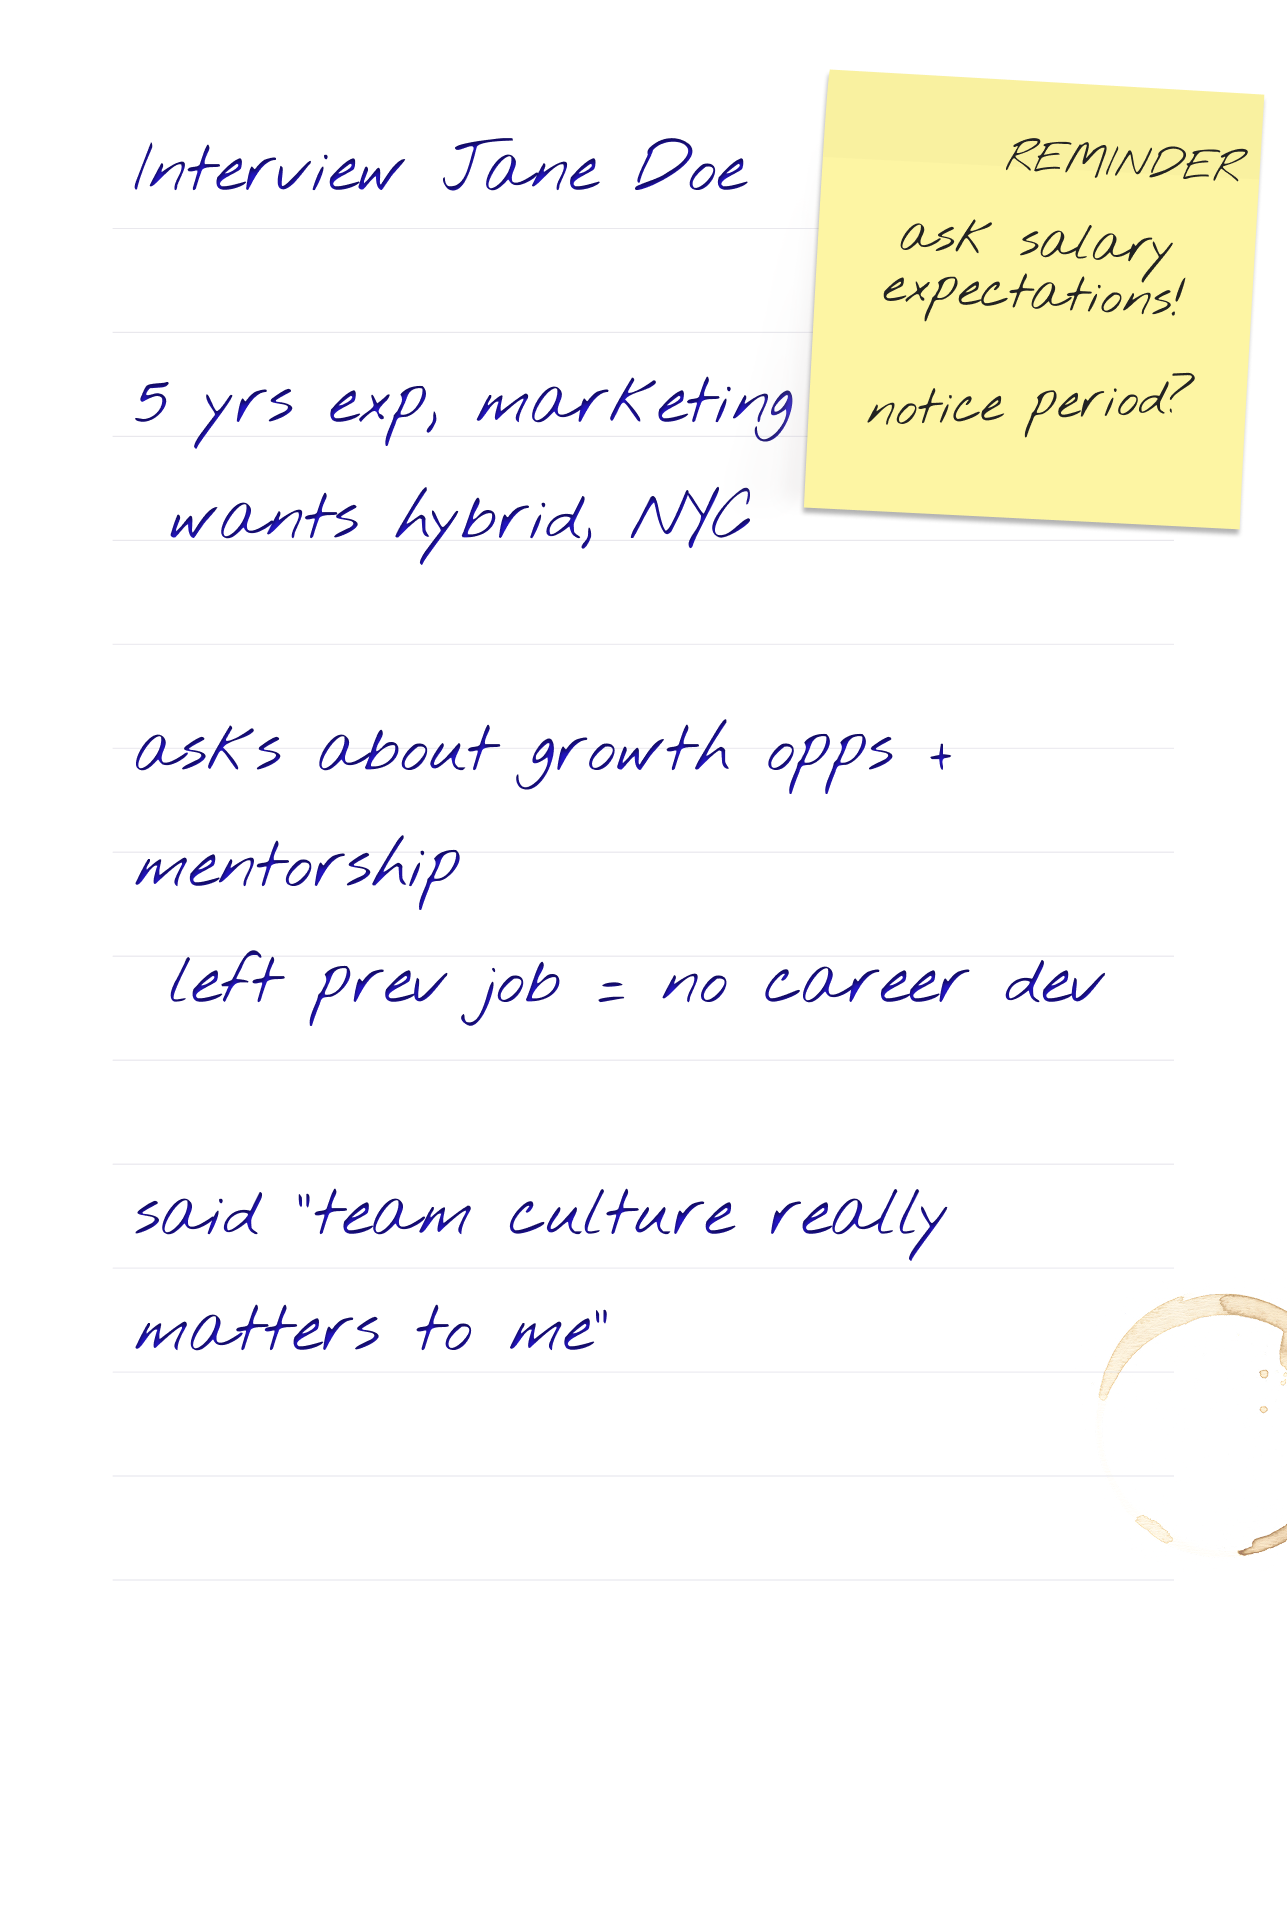 Interview Jane Doe
5 yrs exp, marketing
wants hybrid, NYC
asks about growth opps +
mentorship
left prev job = no career dev
said "team culture really
matters to me"
REMINDER
ask salary
expectations!
notice period?